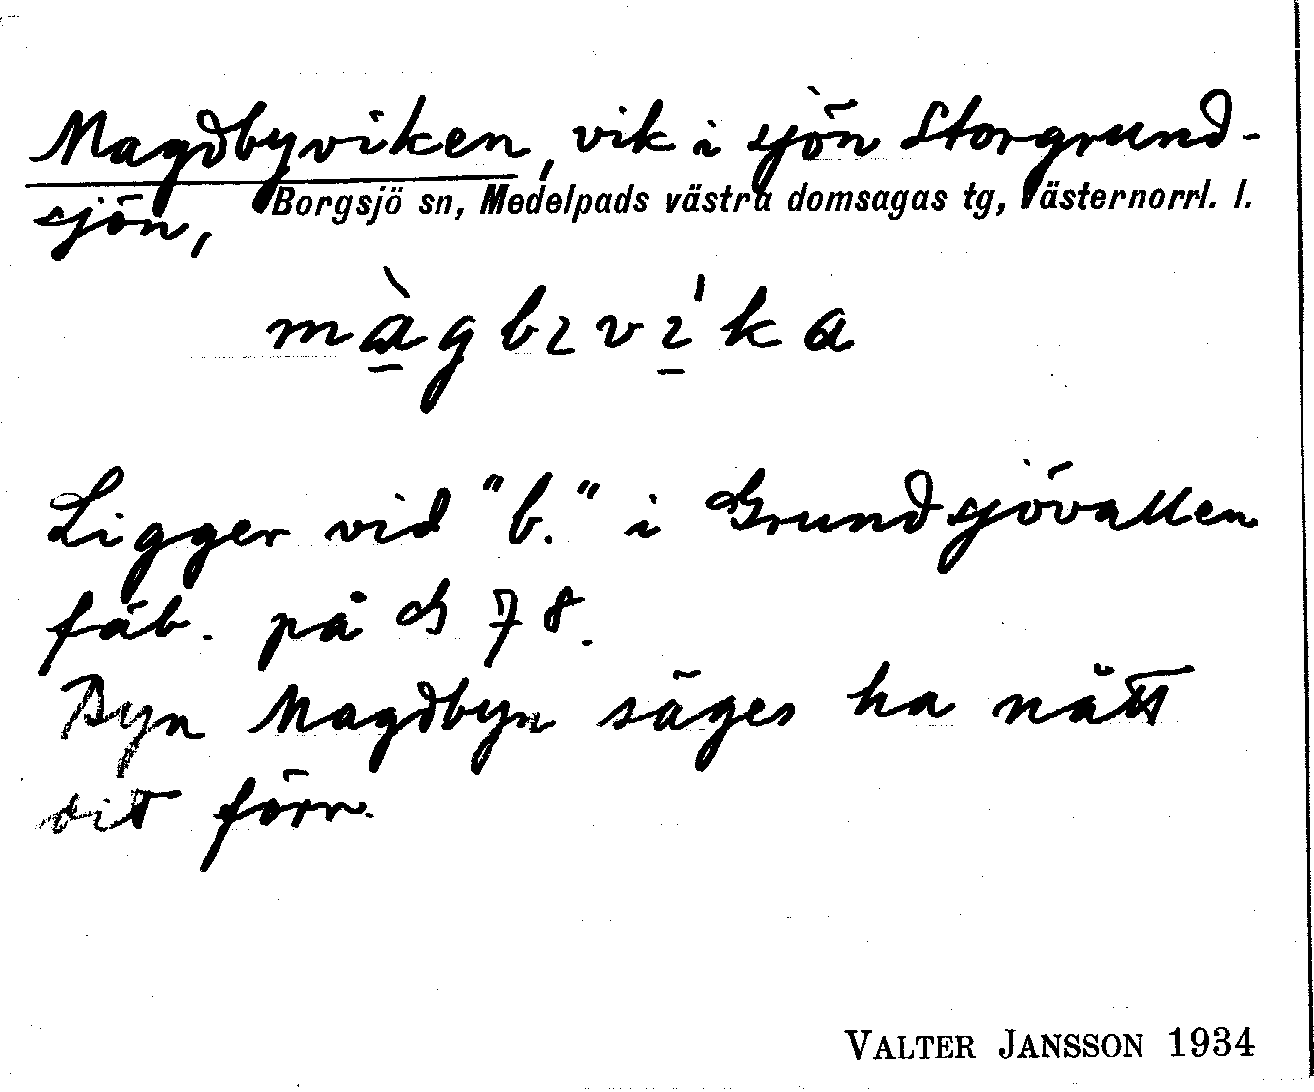 Magdbyviken, vik i sjön Storgrund-
sjön, Borgsjö sn, Medelpads västra domsagas tg, Västernorrl. l.
mà̱gbɪvɪ̱́ka
Ligger vid "b." i Grundsjövallen
fäb. på G 78.
Byn Magdbyn säges ha nått
dit förr.
VALTER JANSSON 1934